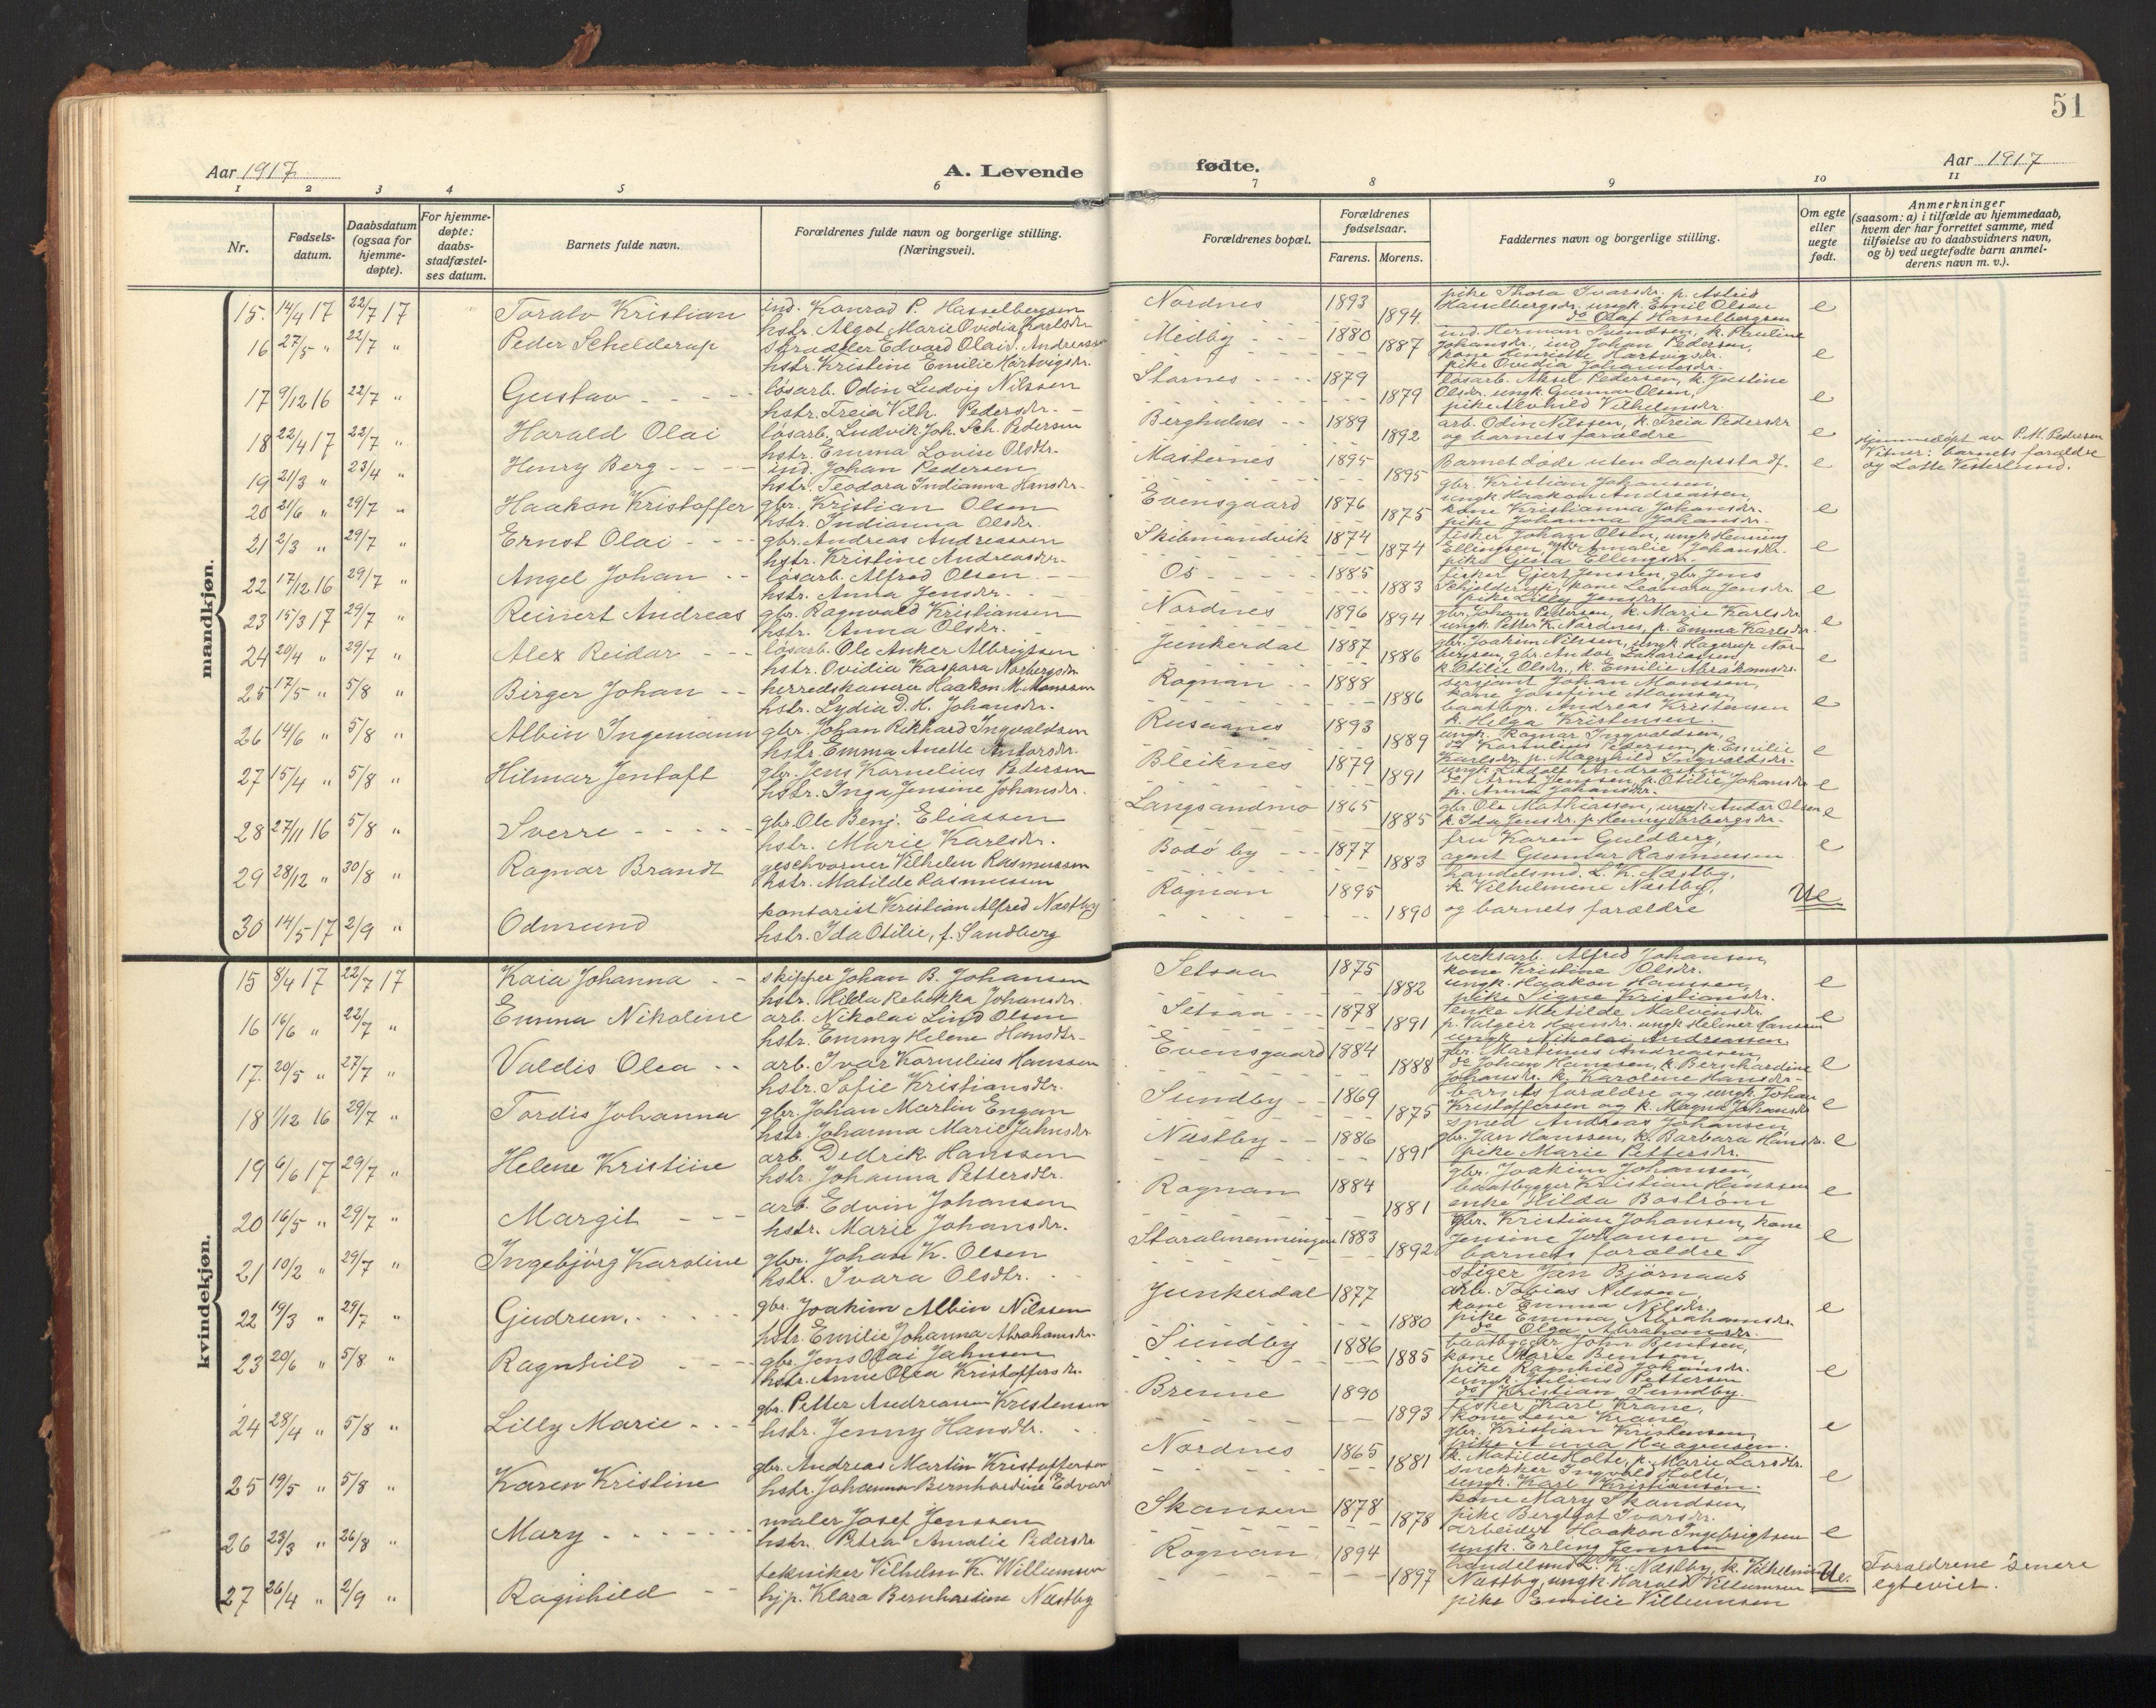 51
Aar 1917
A. Levende
fødte.
Aar 1917
1 2 3 4 5 6 7 8 9 10 11
Nr.
Fødselsdatum.
Daabsdatum (ogsaa for hjemmedøpte).
For hjemmedøpte: daabsstadfæstelses datum.
Barnets fulde navn.
Forældrenes fulde navn og borgerlige stilling. (Næringsvei).
Forældrenes bopæl.
Forældrenes fødselsaar.
Farens. Morens.
Faddernes navn og borgerlige stilling.
Om egte eller uegte født.
Anmerkninger (saasom: a) i tilfælde av hjemmedaab, hvem der har forrettet samme, med tilføielse av to daabsvidners navn, og b) ved uegtefødte barn anmelderens navn m. v.).
mandkjøn.
15. 14/4 17 22/7 17 Toralv Kristian ind. Konrad P. Hasselbergsen
hstr. Algot Marie Ovidia Karlsdr. Nordnes 1893 1894 pike Thora Ivarsdr. p. Astrid
Hasselbergsdr. ungk. Emil Olsen
do Olaf Hasselbergsen e
16 27/5 " 22/7 " Peder Schelderup skrædder Edvard Olai Andreassen
hstr. Kristine Emilie Hartvigsdr. Medby 1880 1887 ind. Herman Svendsen, k. Pauline
Johansdr., ind. Johan Pedersen,
kone Henriette Hartvigsdr.
pike Ovidia Johannesdr. e
17 9/12 16 22/7 " Gustav løsarb. Odin Ludvig Nilssen
hstr. Freia Vilh. Pedersdr. Stornes 1879 1879 løsarb. Aksel Pedersen, k. Justine
Olsdr. ungk. Gunnar Olsen,
pike Alvhild Vilhelmsdr. e
18 22/4 17 22/7 " Harald Olai løsarb. Ludvik Joh. Sch. Pedersen
hstr. Emma Lovise Olsdtr. Bergholnes 1889 1892 arb. Odin Nilssen, k. Freia Pedersdr
og barnets forældre e
19 21/3 " 23/4 " Henry Berg ind. Johan Pedersen
hstr. Teodora Indianna Hansdr. Masternes 1895 1895 Barnet døde uten daapsstadf. e Hjemmedøpt av P. M. Pedersen
Vitner: barnets forældre
og Lotte Vesterlund.
20 21/6 " 29/7 " Haakon Kristoffer gbr. Kristian Olsen
hstr. Indianna Olsdr. Evensgaard 1876 1875 gbr. Kristian Johansen,
ungk. Haakon Andreassen,
kone Kristianna Johansdr.
pike Johanna Johansdr. e
21 2/3 " 29/7 " Ernst Olai gbr. Andreas Andreassen
hstr. Kristine Andreasdr. Skibmandvik 1874 1874 fisker Johan Olsen, ungk. Henning
Ellingsen, Amalie Johansdr.
pike Gjeta Ellingsdr. e
22 17/12 16 29/7 " Angel Johan løsarb. Alfred Olsen
hstr. Anna Jensdr. Os 1885 1883 fisker Gjert Jenssen, gbr. Jens
kone Leonora Jensdr.
pike Lilly Jensdr. e
23 15/3 17 29/7 " Reinert Andreas gbr. Ragnvald Kristiansen
hstr. Anna Olsdr. Nordnes 1896 1894 gbr. Johan Pedersen, k. Marie Karlsdr.
ungk. Petter K. Nordnes, p. Emma Karlsdr. e
24 20/4 " 29/7 " Alex Reidar løsarb. Ole Anker Albrigtsen
hstr. Ovidia Kaspara Norbergsdr. Junkerdal 1887 1886 gbr. Joakim Nilssen, ungk. Hagerup Nor-
bergsen, gbr. Andor Zakariassen,
k. Otilie Olsdr., k. Emilie Abrahamsdr. e
25 17/5 " 5/8 " Birger Johan herredskasserer Haakon M. Monssen
hstr. Lydia D. H. Johansdr. Rognan 1888 1886 sersjant Johan Monssen,
kone Josefine Monssen,
baatbgr. Andreas Kristensen
k. Helga Kristensen. e
26 14/6 " 5/8 " Albin Ingemann gbr. Johan Rikhard Ingvaldsen
hstr. Emma Anette Andorsdr. Rusaanes 1893 1889 ungk. Ragnar Ingvaldsen,
do Kornelius Pedersen, p. Emilie
Karlsdr. p. Magnhild Ingvaldsdr. e
27 15/4 " 5/8 " Hilmar Jentoft gbr. Jens Kornelius Pedersen
hstr. Inga Jensine Johansdr. Bleiknes 1879 1891 ungk. Ludolf Andreassen,
do Arnt Jenssen, p. Otilie Johansdr
p. Anna Johansdr. e
28 27/11 16 5/8 " Sverre gbr. Ole Benj. Eliassen
hstr. Marie Karlsdr. Langsandmo 1865 1885 gbr. Ole Mathiassen, ungk. Andor Olsen
k. Ida Jensdr. p. Henny Torbergsdr. e
29 28/12 " 30/8 " Ragnar Brandt geschvorner Vilhelm Rasmussen
hstr. Matilde Rasmussen Bodø by 1877 1883 fru Karen Guldberg,
agent Gunnar Rasmussen e
30 14/5 17 2/9 " Odmund kontorist Kristian Alfred Næstby
hstr. Ida Otilie, f. Sandberg Rognan 1895 1890 handelsmd. L. K. Næstby,
k. Vilhelmine Næstby,
og barnets forældre Ue
kvindekjøn.
15 8/4 17 22/7 17 Kaia Johanna skipper Johan B. Johansen
hstr. Hilda Rebekka Johansdr. Setsaa 1875 1882 verksarb. Alfred Johansen,
kone Kristine Olsdr.
ungk. Haakon Hanssen,
pike Signe Kristiansdr. e
16 16/6 " 22/7 " Emma Nikoline arb. Nikolai Lind Olsen
hstr. Emmy Helene Hansdtr. Setsaa 1878 1891 enke Matilde Malvensdr.
p. Valgeir Hansdr. ungk. Helmer Hanssen
ungk. Nikolai Andreassen. e
17. 20/5 " 27/7 " Valdis Olea arb. Ivar Kornelius Hanssen
hstr. Sofie Kristiansdtr. Evensgaard 1884 1888 gbr. Martinus Andreassen,
do Johan Hanssen, k. Bernhardine
Johansdr. k. Karoline Hansdr. e
18 1/12 16 29/7 " Tordis Johanna gbr. Johan Martin Engan
hstr. Johanna Marie Jahnsdr. Sundby 1869 1875 barnets forældre og ungk. Johan
Kristoffersen og k. Magna Johansdr e
19 6/6 17 29/7 " Helene Kristine arb. Dedrik Hanssen
hstr. Johanna Pettersdtr. Næstby 1886 1891 smed Andreas Johansen
gbr. Jan Hanssen, k. Barbara Hansdr.
pike Marie Pettersdr. e
20 16/5 " 29/7 " Margit arb. Edvin Johansen
hstr. Marie Johansdr. Rognan 1884 1881 gbr. Joakim Johansen,
baatbygger Kristian Hanssen
enke Hilda Bostrøm e
21 10/2 " 29/7 " Ingebjørg Karoline gbr. Johan K. Olsen
hstr. Ivara Olsdtr. Storalmenningen 1883 1892 gbr. Kristian Johansen, kone
Jensine Johansen og
barnets forældre e
22 19/3 " 29/7 " Gudrun. gbr. Joakim Albin Nilssen
hstr. Emilie Johanna Abrahamsdr. Junkerdal 1877 1880 stiger Jan Bjørnaas
arb. Tobias Nilssen,
kone Emma Nilsdr.
pike Emma Abrahamsdr.
do Olga Abrahamsdr. e
23 20/6 " 5/8 " Ragnhild gbr. Jens Olai Jahnsen
hstr. Anne Olea Kristoffersdr. Sundby 1886 1885 baatbygger John Bentsen,
kone Marie Bentsen,
pike Ragnhild Johansdr.
ungk. Julius Pettersen
do Kristian Sundby. e
24 28/4 " 5/8 " Lilly Marie gbr. Petter Andreassen Kristensen
hstr. Jenny Hansdtr. Brenne 1890 1893 fisker Karl Krane,
kone Lene Krane,
gbr. Kristian Kristensen,
pike Anna Haagensen. e
25 19/5 " 5/8 " Karen Kristine gbr. Andreas Martin Kristoffersen
hstr. Johanna Bernhardine Edvard Nordnes 1865 1881 k. Matilde Holte, p. Marie Larsdtr.
snekker Ingvald Holte,
ungk. Karl Kristiansen. e
26 23/3 " 26/8 " Mary maler Josef Jenssen
hstr. Petra Amalie Pedersdr Skansen 1878 1878 kone Mary Skandsen,
pike Bergljot Ivarsdr.
arbeider Haakon Ingebrigtsen
ungk. Erling Jenssen e
27 26/4 " 2/9 " Ragnhild tekniker Vilhelm K. Willumsen
hjp. Klara Bernhardine Næstby Rognan 1894 1897 handelsmd. L. K. Næstby, k. Vilhelmine
Næstby, ungk. Harald Villumsen
pike Emilie Villumsen Ue. Forældrene senere
egteviet.